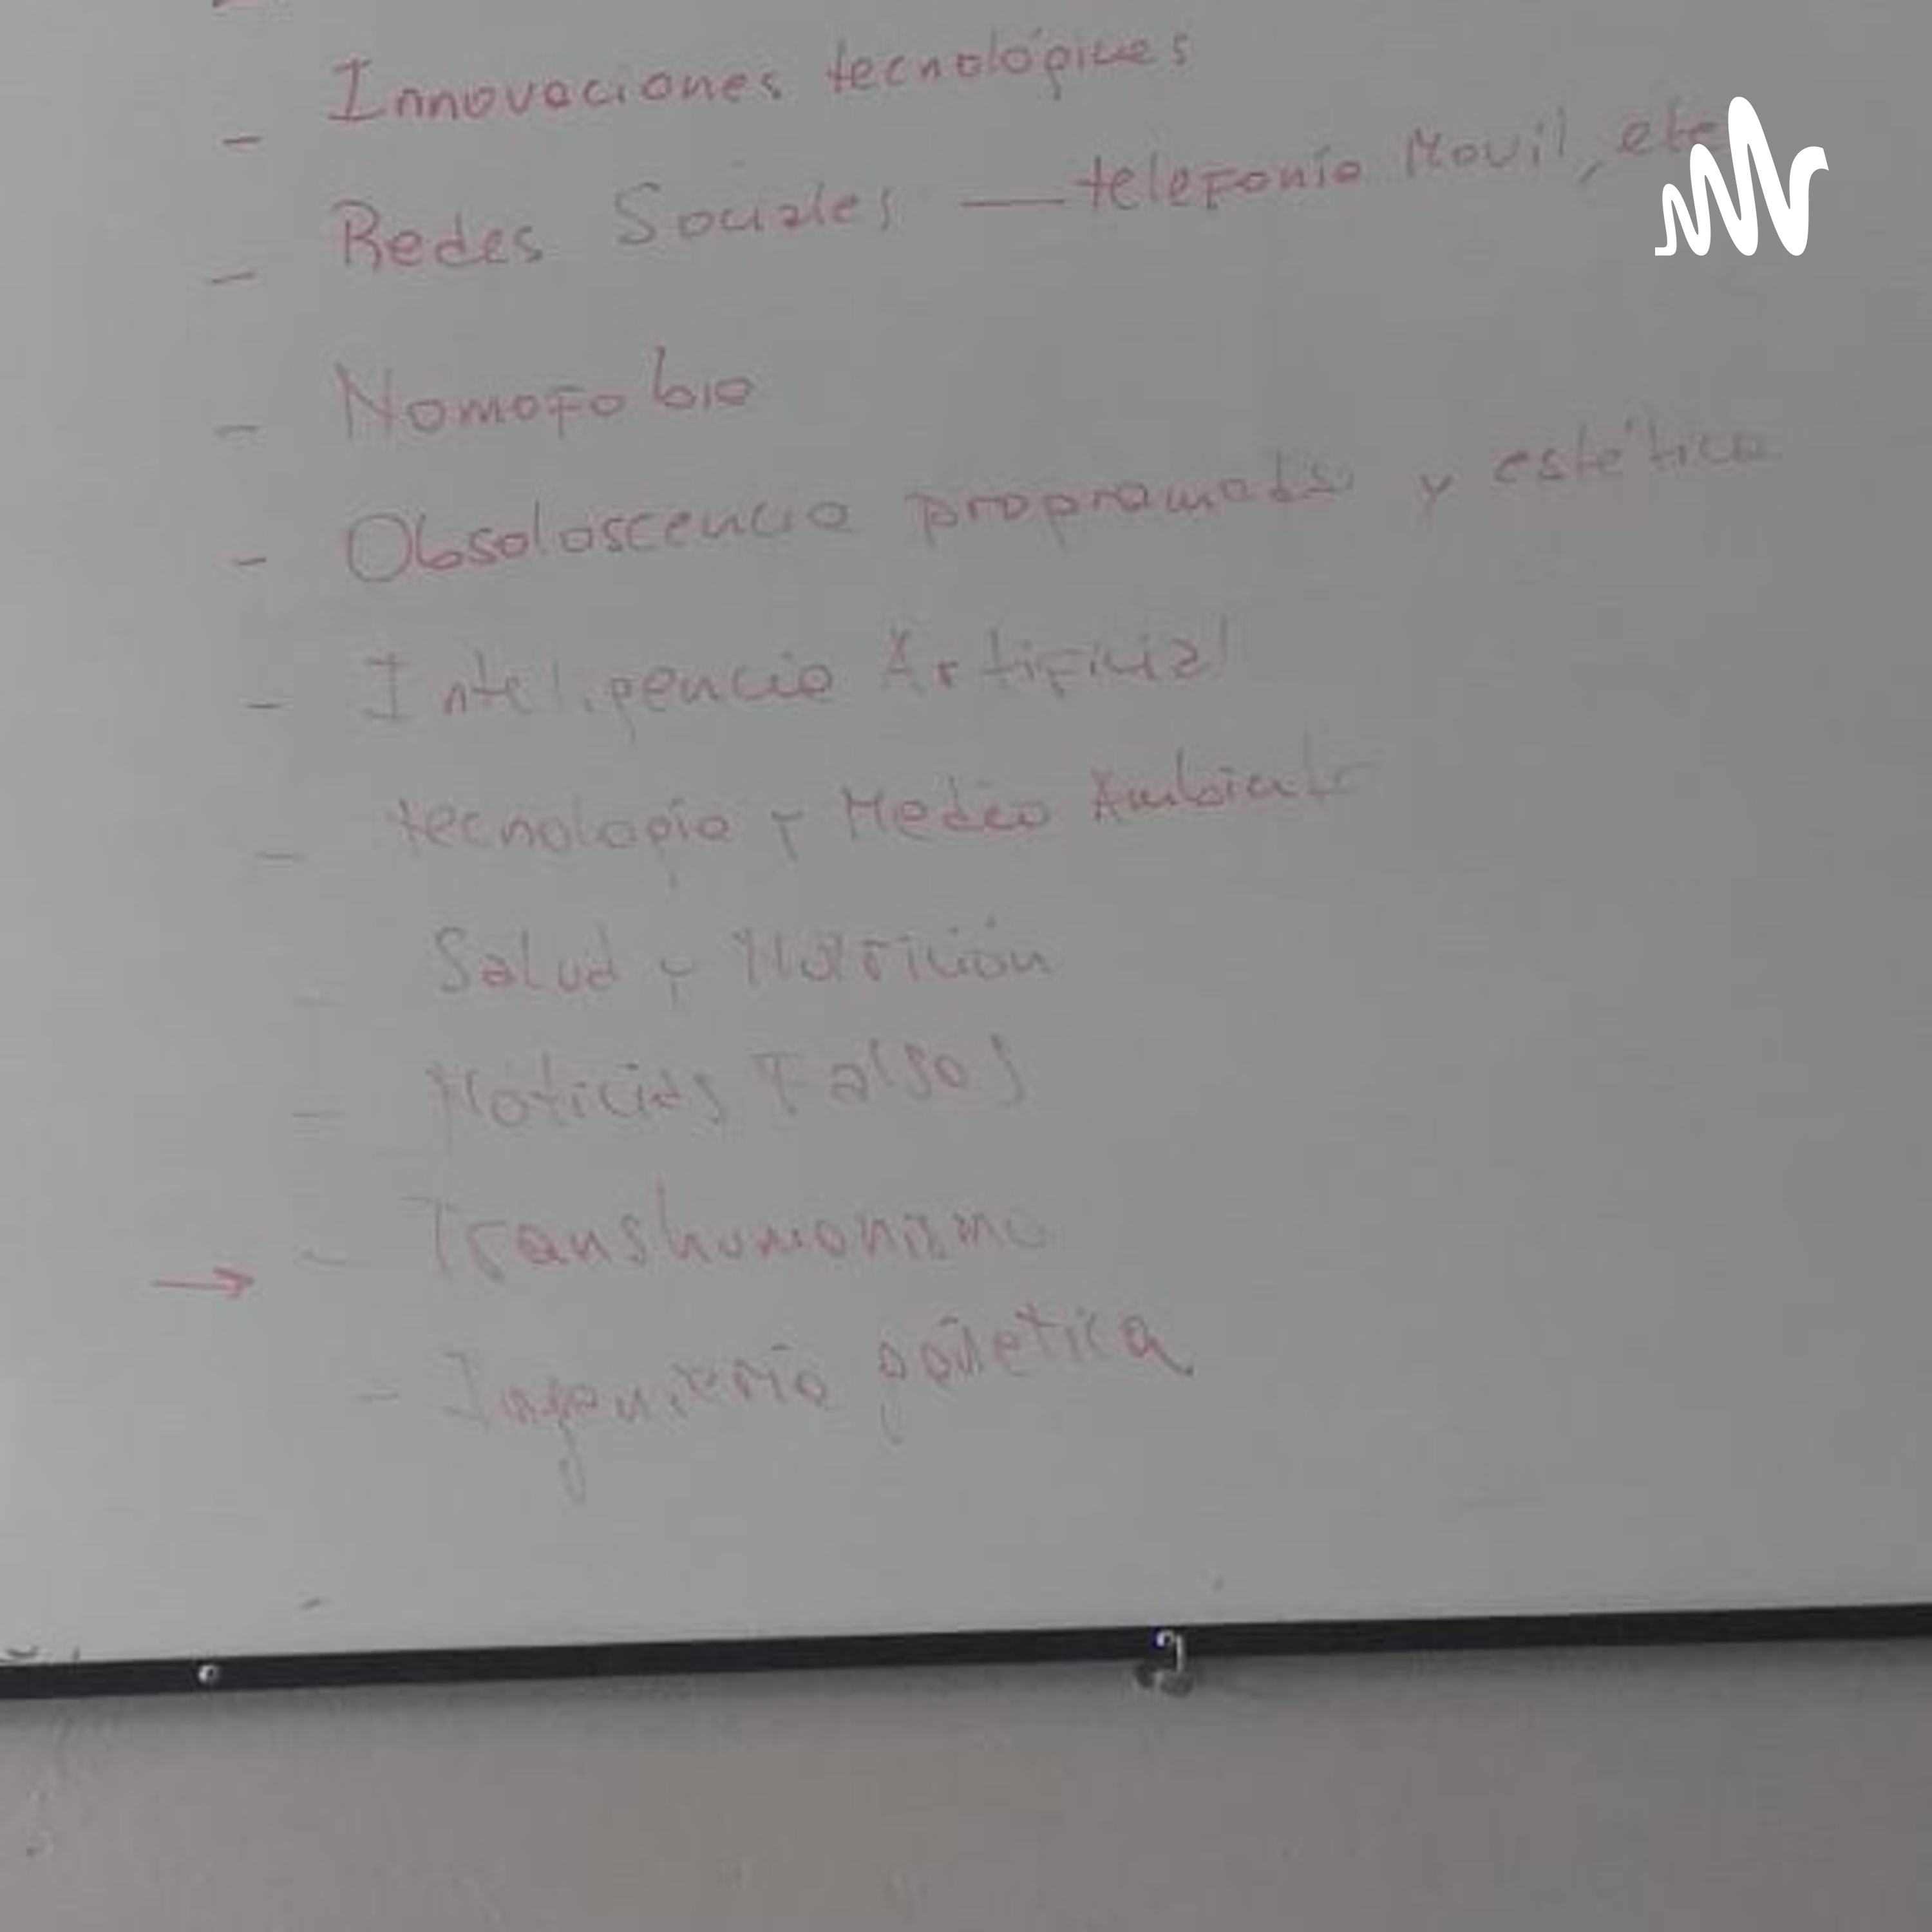 - Innovaciones tecnológicas
- Redes Sociales — telefonía Movil, etc
- Nomofobia
- Obsoloscencia programada y estética
- Inteligencia Artificial
- tecnología y Medio Ambiente
- Salud y Nutrición
- Noticias Falsas
→ - Transhumanismo
- Ingeniería genética